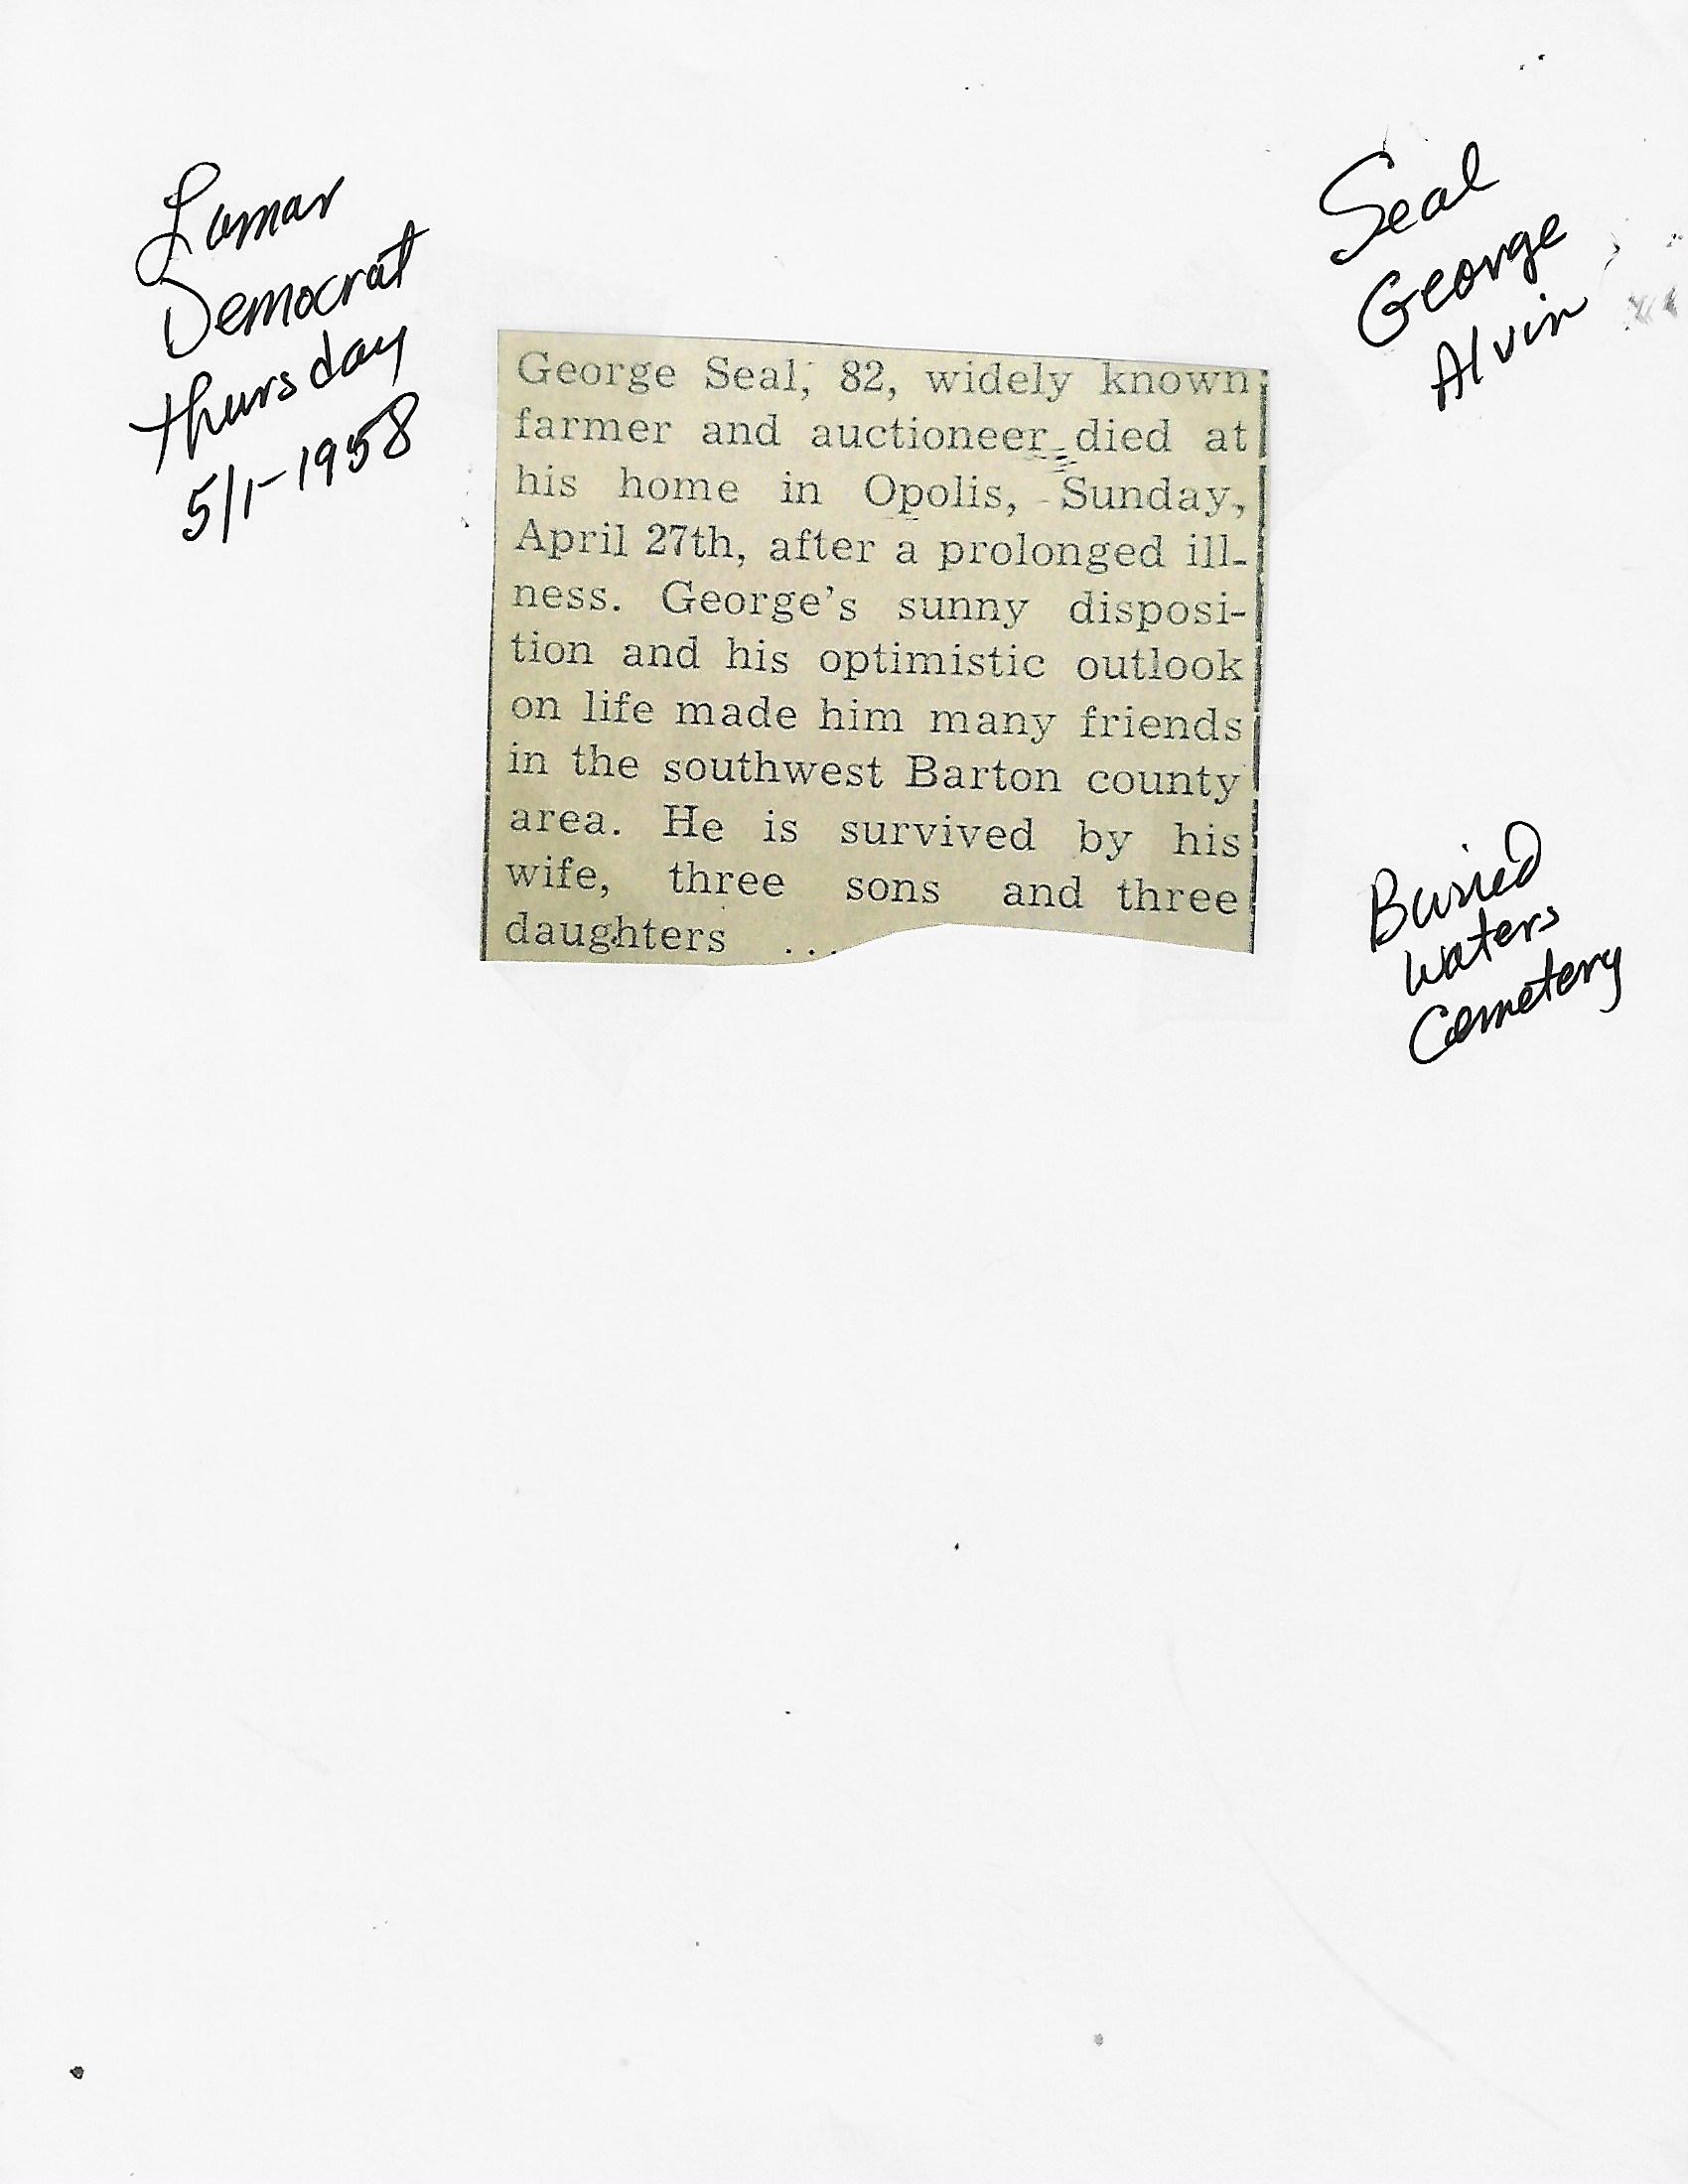 Lamar
Democrat
Thursday
5/1-1958
Seal
George
Alvin
George Seal, 82, widely known
farmer and auctioneer died at
his home in Opolis, Sunday,
April 27th, after a prolonged ill-
ness. George's sunny disposi-
tion and his optimistic outlook
on life made him many friends
in the southwest Barton county
area. He is survived by his
wife, three sons and three
daughters ...
Buried
Waters
Cemetery